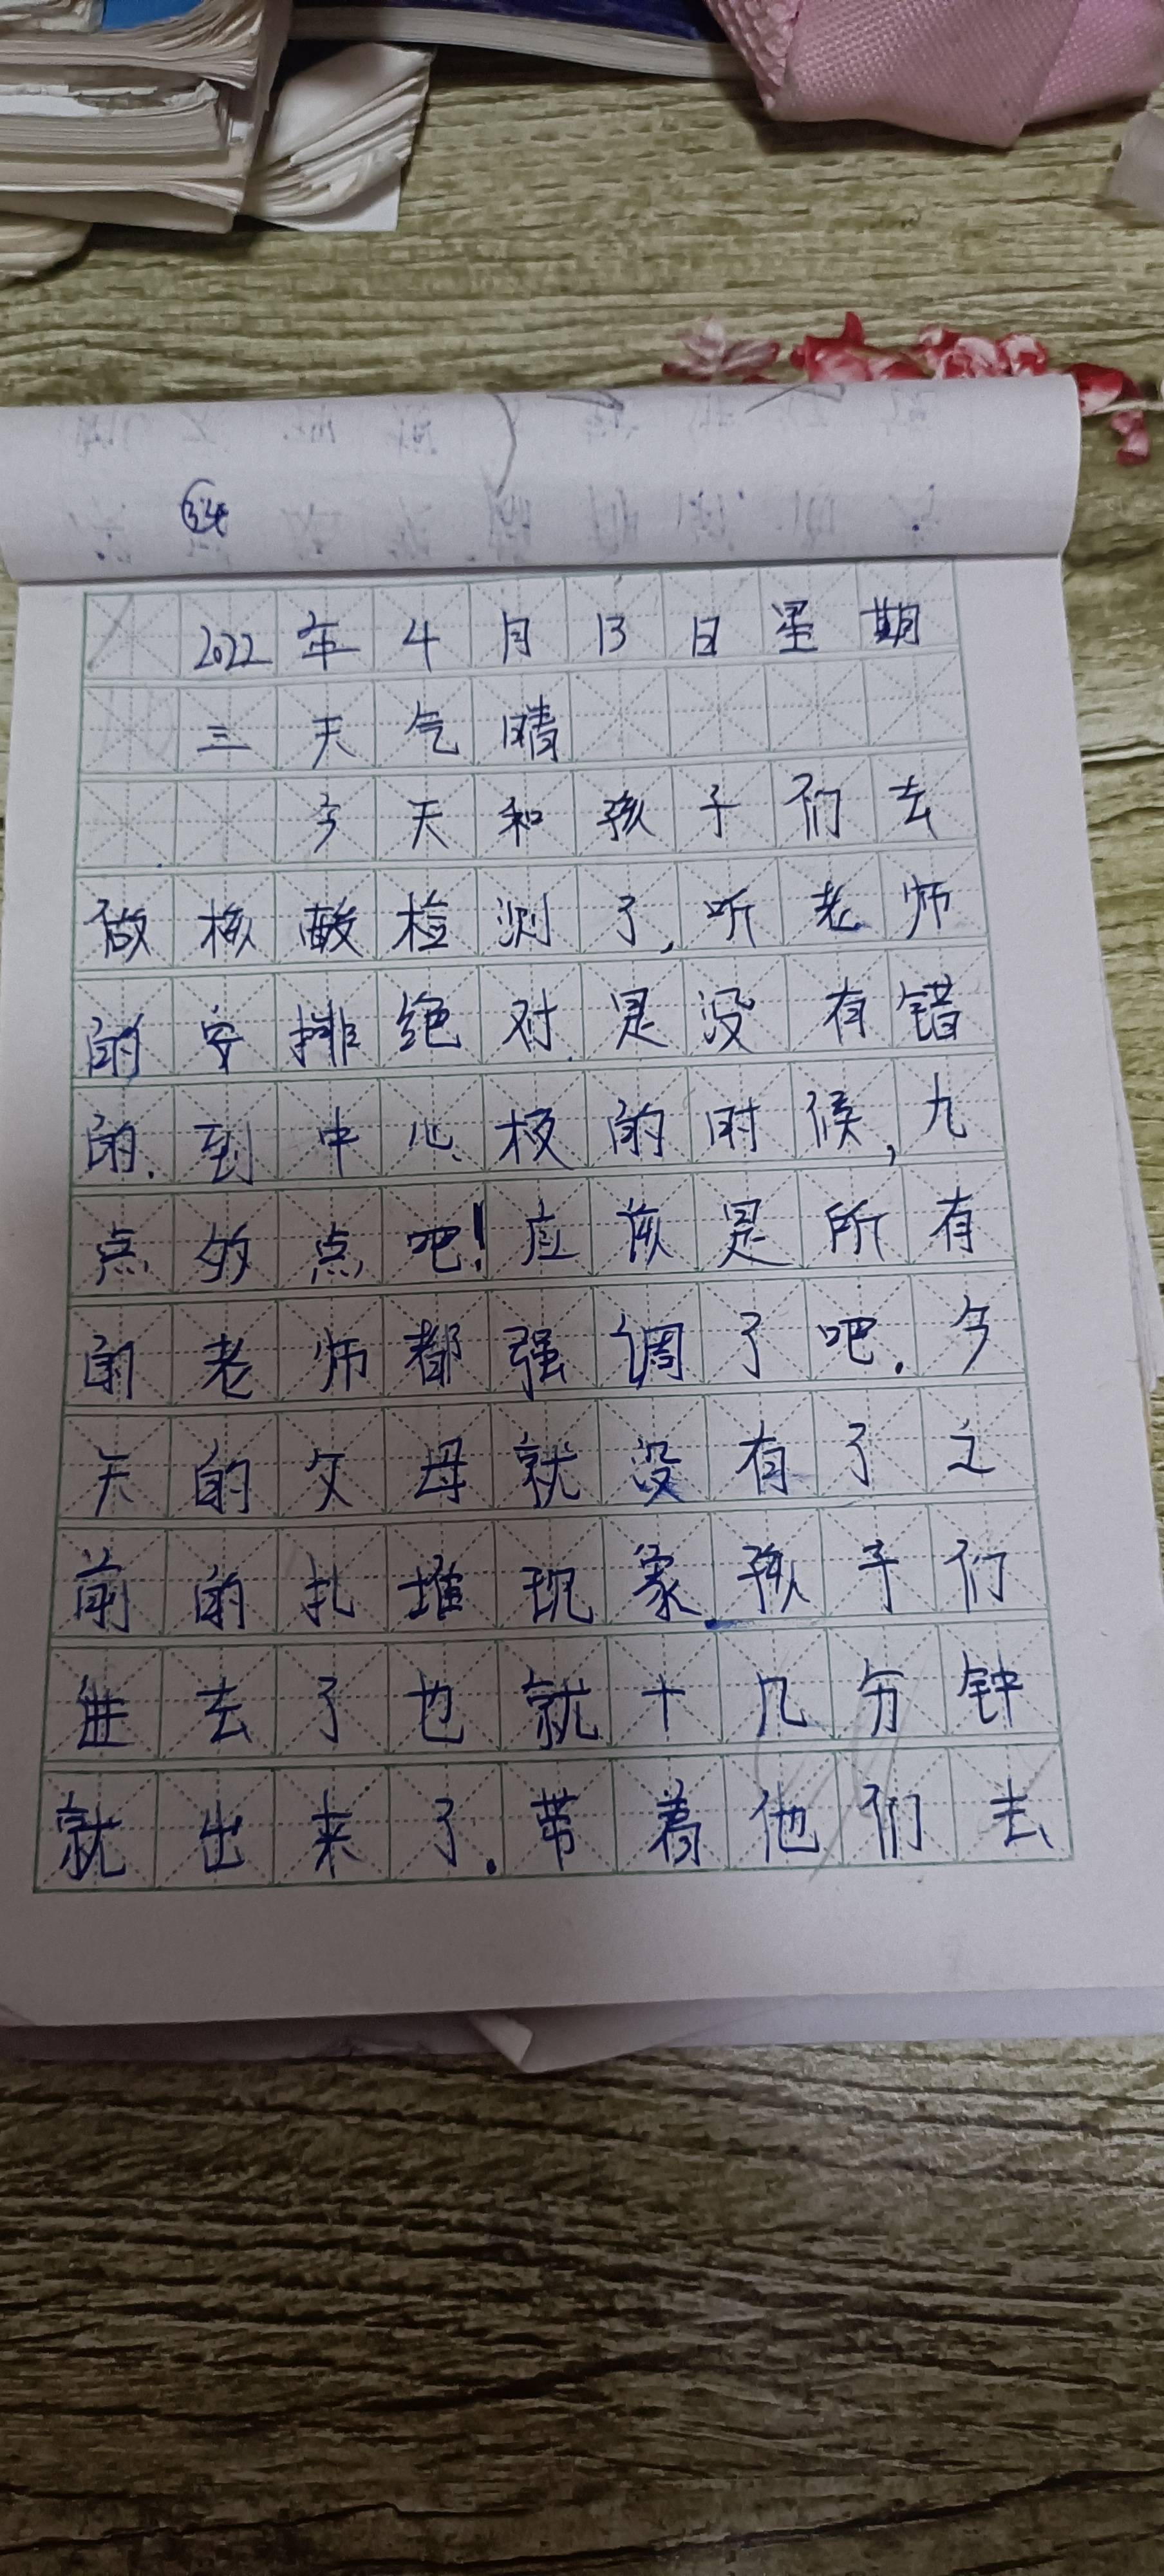 34
2022年4月13日星期
三天气晴
今天和孩子们去
做核酸检测了,听老师
的安排绝对是没有错
的.到中心校的时候,九
点多点吧!应该是所有
的老师都强调了吧.今
天的父母就没有了之
前的扎堆现象.孩子们
进去了也就十几分钟
就出来了.带着他们去